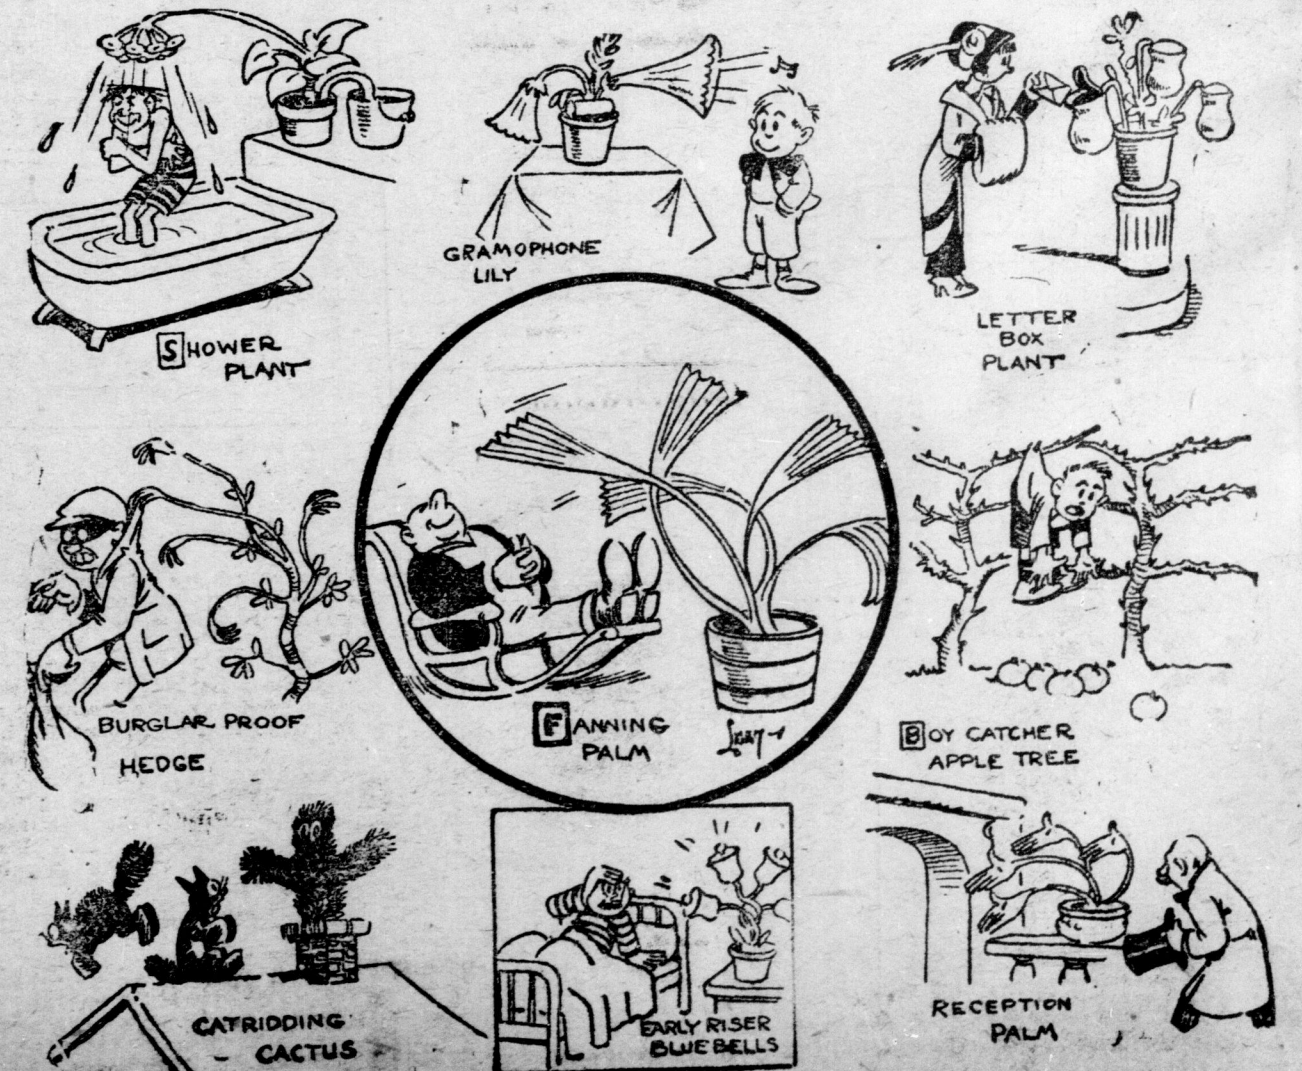 GRAMOPHONE
LILY
LETTER
BOX
PLANT
SHOWER
PLANT
BURGLAR PROOF
HEDGE
FANNING
PALM
BOY CATCHER
APPLE TREE
CATRIDDING
CACTUS
EARLY RISER
BLUEBELLS
RECEPTION
PALM